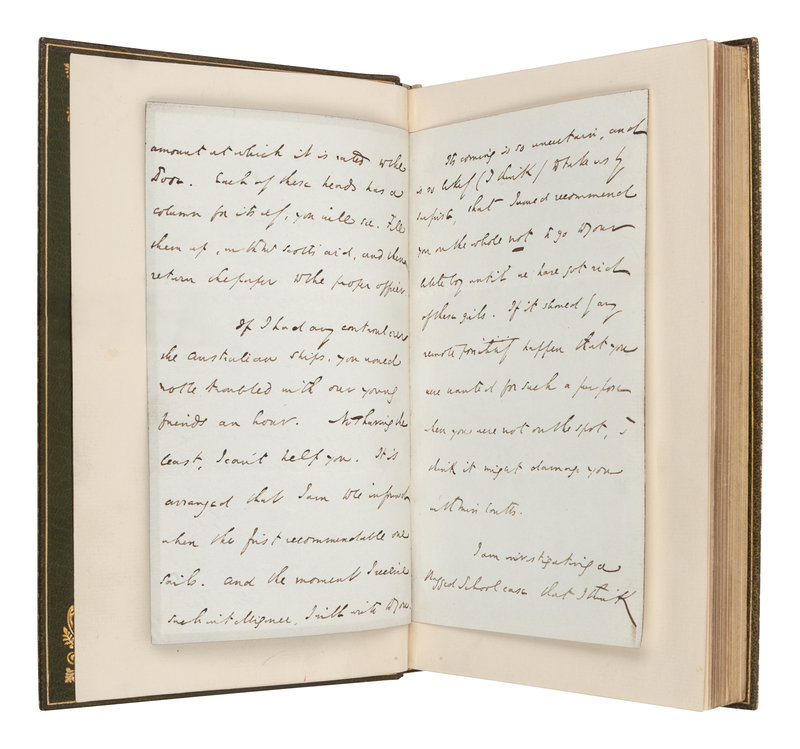 amount at which it is rated to the
Door. Each of these heads has a
column for itself, you will see. Fill
them up, with Scott's aid, and then
return the paper to the proper officer
If I had any control over
the Australian ships, you would
not be troubled with our young
friends an hour. Not having the
least, I can't help you. It is
arranged that I am to be informed
when the first recommendable one
sails. and the moment I receive
such intelligence, I will write to you.
Its coming is so uncertain, and
is so likely (I think) to take us by
surprise, that I would recommend
you on the whole not to go to your
little boy until we have got rid
of these girls. If it should by any
remote possibility happen that you
were wanted for such a purpose
when you were not on the spot, I
think it might damage you
with Miss Coutts.
I am investigating a
Ragged School case that I think